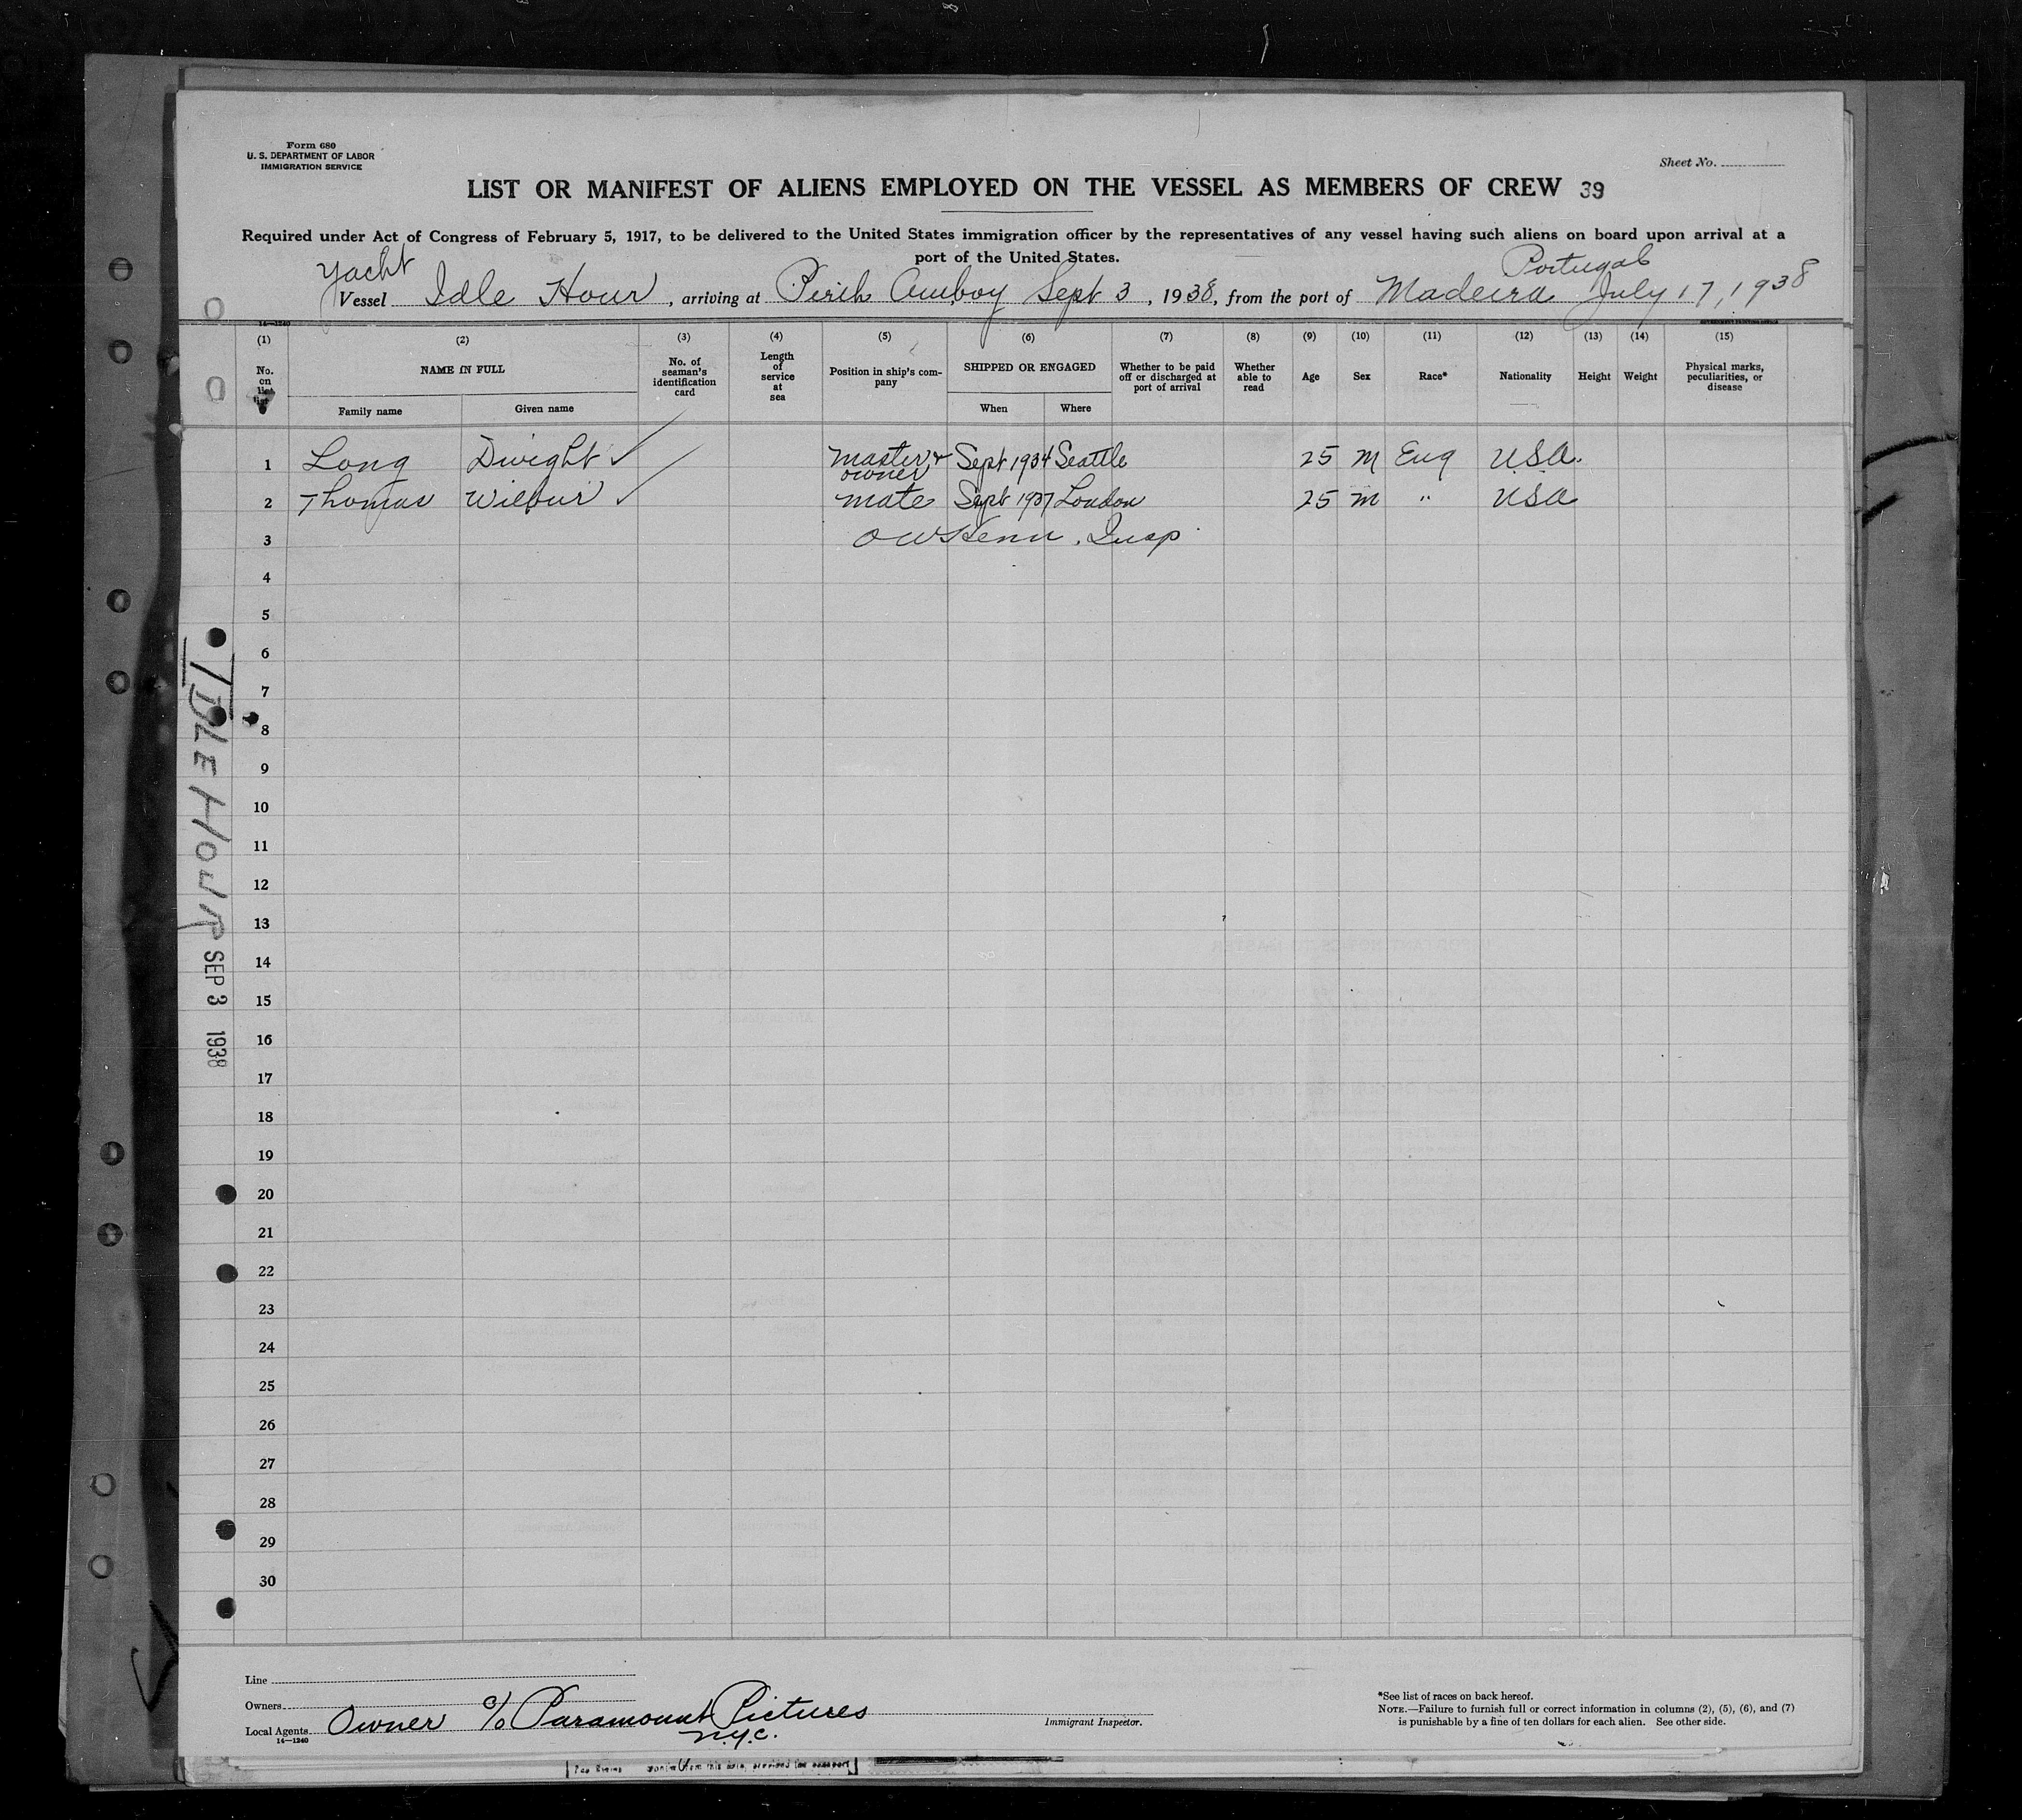 Form 680
U. S. DEPARTMENT OF LABOR
IMMIGRATION SERVICE
Sheet No.
LIST OR MANIFEST OF ALIENS EMPLOYED ON THE VESSEL AS MEMBERS OF CREW 39
Required under Act of Congress of February 5, 1917, to be delivered to the United States immigration officer by the representatives of any vessel having such aliens on board upon arrival at a
port of the United States.
Yacht Portugal
Vessel Idle Hour, arriving at Perth Amboy Sept 3, 1938, from the port of Madeira July 17, 1938
14—1240
(1) (2) (3) (4) (5) (6) (7) (8) (9) (10) (11) (12) (13) (14) (15)
No. on list NAME IN FULL No. of seaman's identification card Length of service at sea Position in ship's company SHIPPED OR ENGAGED Whether to be paid off or discharged at port of arrival Whether able to read Age Sex Race* Nationality Height Weight Physical marks, peculiarities, or disease
Family name Given name When Where
1 Long Dwight ✓ master & owner Sept 1934 Seattle 25 M Eng USA.
2 Thomas Wilbur ✓ mate Sept 1937 London 25 m " USA
3 Insp
4
5
6
7
8
9
10
11
12
13
14
15
16
17
18
19
20
21
22
23
24
25
26
27
28
29
30
IDLE HOUR SEP 3 1938
Line
Owners
Local Agents Owner c/o Paramount Pictures
N.Y.C.
14—1240
Immigrant Inspector.
*See list of races on back hereof.
NOTE.—Failure to furnish full or correct information in columns (2), (5), (6), and (7)
is punishable by a fine of ten dollars for each alien. See other side.